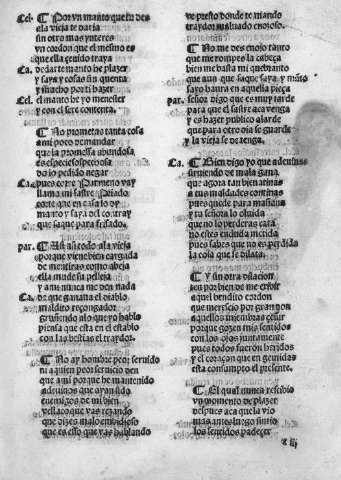 Cel. ¶ Por vn manto que tu des
a la vieja te daria
sin otro mas ynteres
vn cordon que el mesmo es
que ella çenido traya
Ca. de darte manto he plazer
y saya y cosas sin quenta
y mucho por ti hazer
Cel. el manto he yo menester
y con el sere contenta.
¶ No prometas tanta cosa
a mi poco demandar
que la promessa abundosa
es especie sospechosa
do lo pedido negar
Ca. pues corre Parmeno vay
llama mi sastre Priado
corte que en casa lo ay
manto y saya del contray
que saque para frisado.
par. ¶ Assi assi todo a la vieja
porque viene bien cargada
de mentiras como abeja
ella mude su pelleja
y a mi nunca me den nada
Ca. de que gana el diablo
maldito reçongador
gruñendo a lo que yo hablo
piensa que esta en el establo
con las bestias el traydor.
¶ No ay hombre peor seruido
ni a quien peor seruicio den
que a mi porque he mantenido
adeuinos que ayan sido
enemigos de mi bien
vellaco que vas rezando
que dizes malo embidioso
que es esso que vas hablando
ve presto donde te mando
traydor maluado enojoso.
¶ No me des enojo tanto
que me rompes la cabeça
bien me basta mi quebranto
que aun que saque saya y mãto
sayo haura en aquella pieça
par. señor digo que es muy tarde
para que el sastre aca venga
y es hazer publico alarde
que para otro dia se guarde
y la vieja se detenga.
Ca. ¶ Bien digo yo que adeuinas
siruiendo de mala gana
que agora tan bien atinas
a tus maldades continas
pues quede para mañana
y tu señora lo oluida
que no lo perderas cata
no estes en duda metida
pues sabes que no es perdida
la cosa que se dilata.
¶ Y sin otra dilacion
ten por bien de me ceuir
aquel bendito cordon
que merescio por gran don
aquellos miembros ceñir
porque gozen mis sentidos
con los ojos juntamente
pues todos fueron heridos
y el coraçon que en gemidos
esta consumpto el presente.
¶ El qual nunca rescibio
vn momento de plazer
despues aca que la vio
mas antes luego sintio
los sentidos padecer